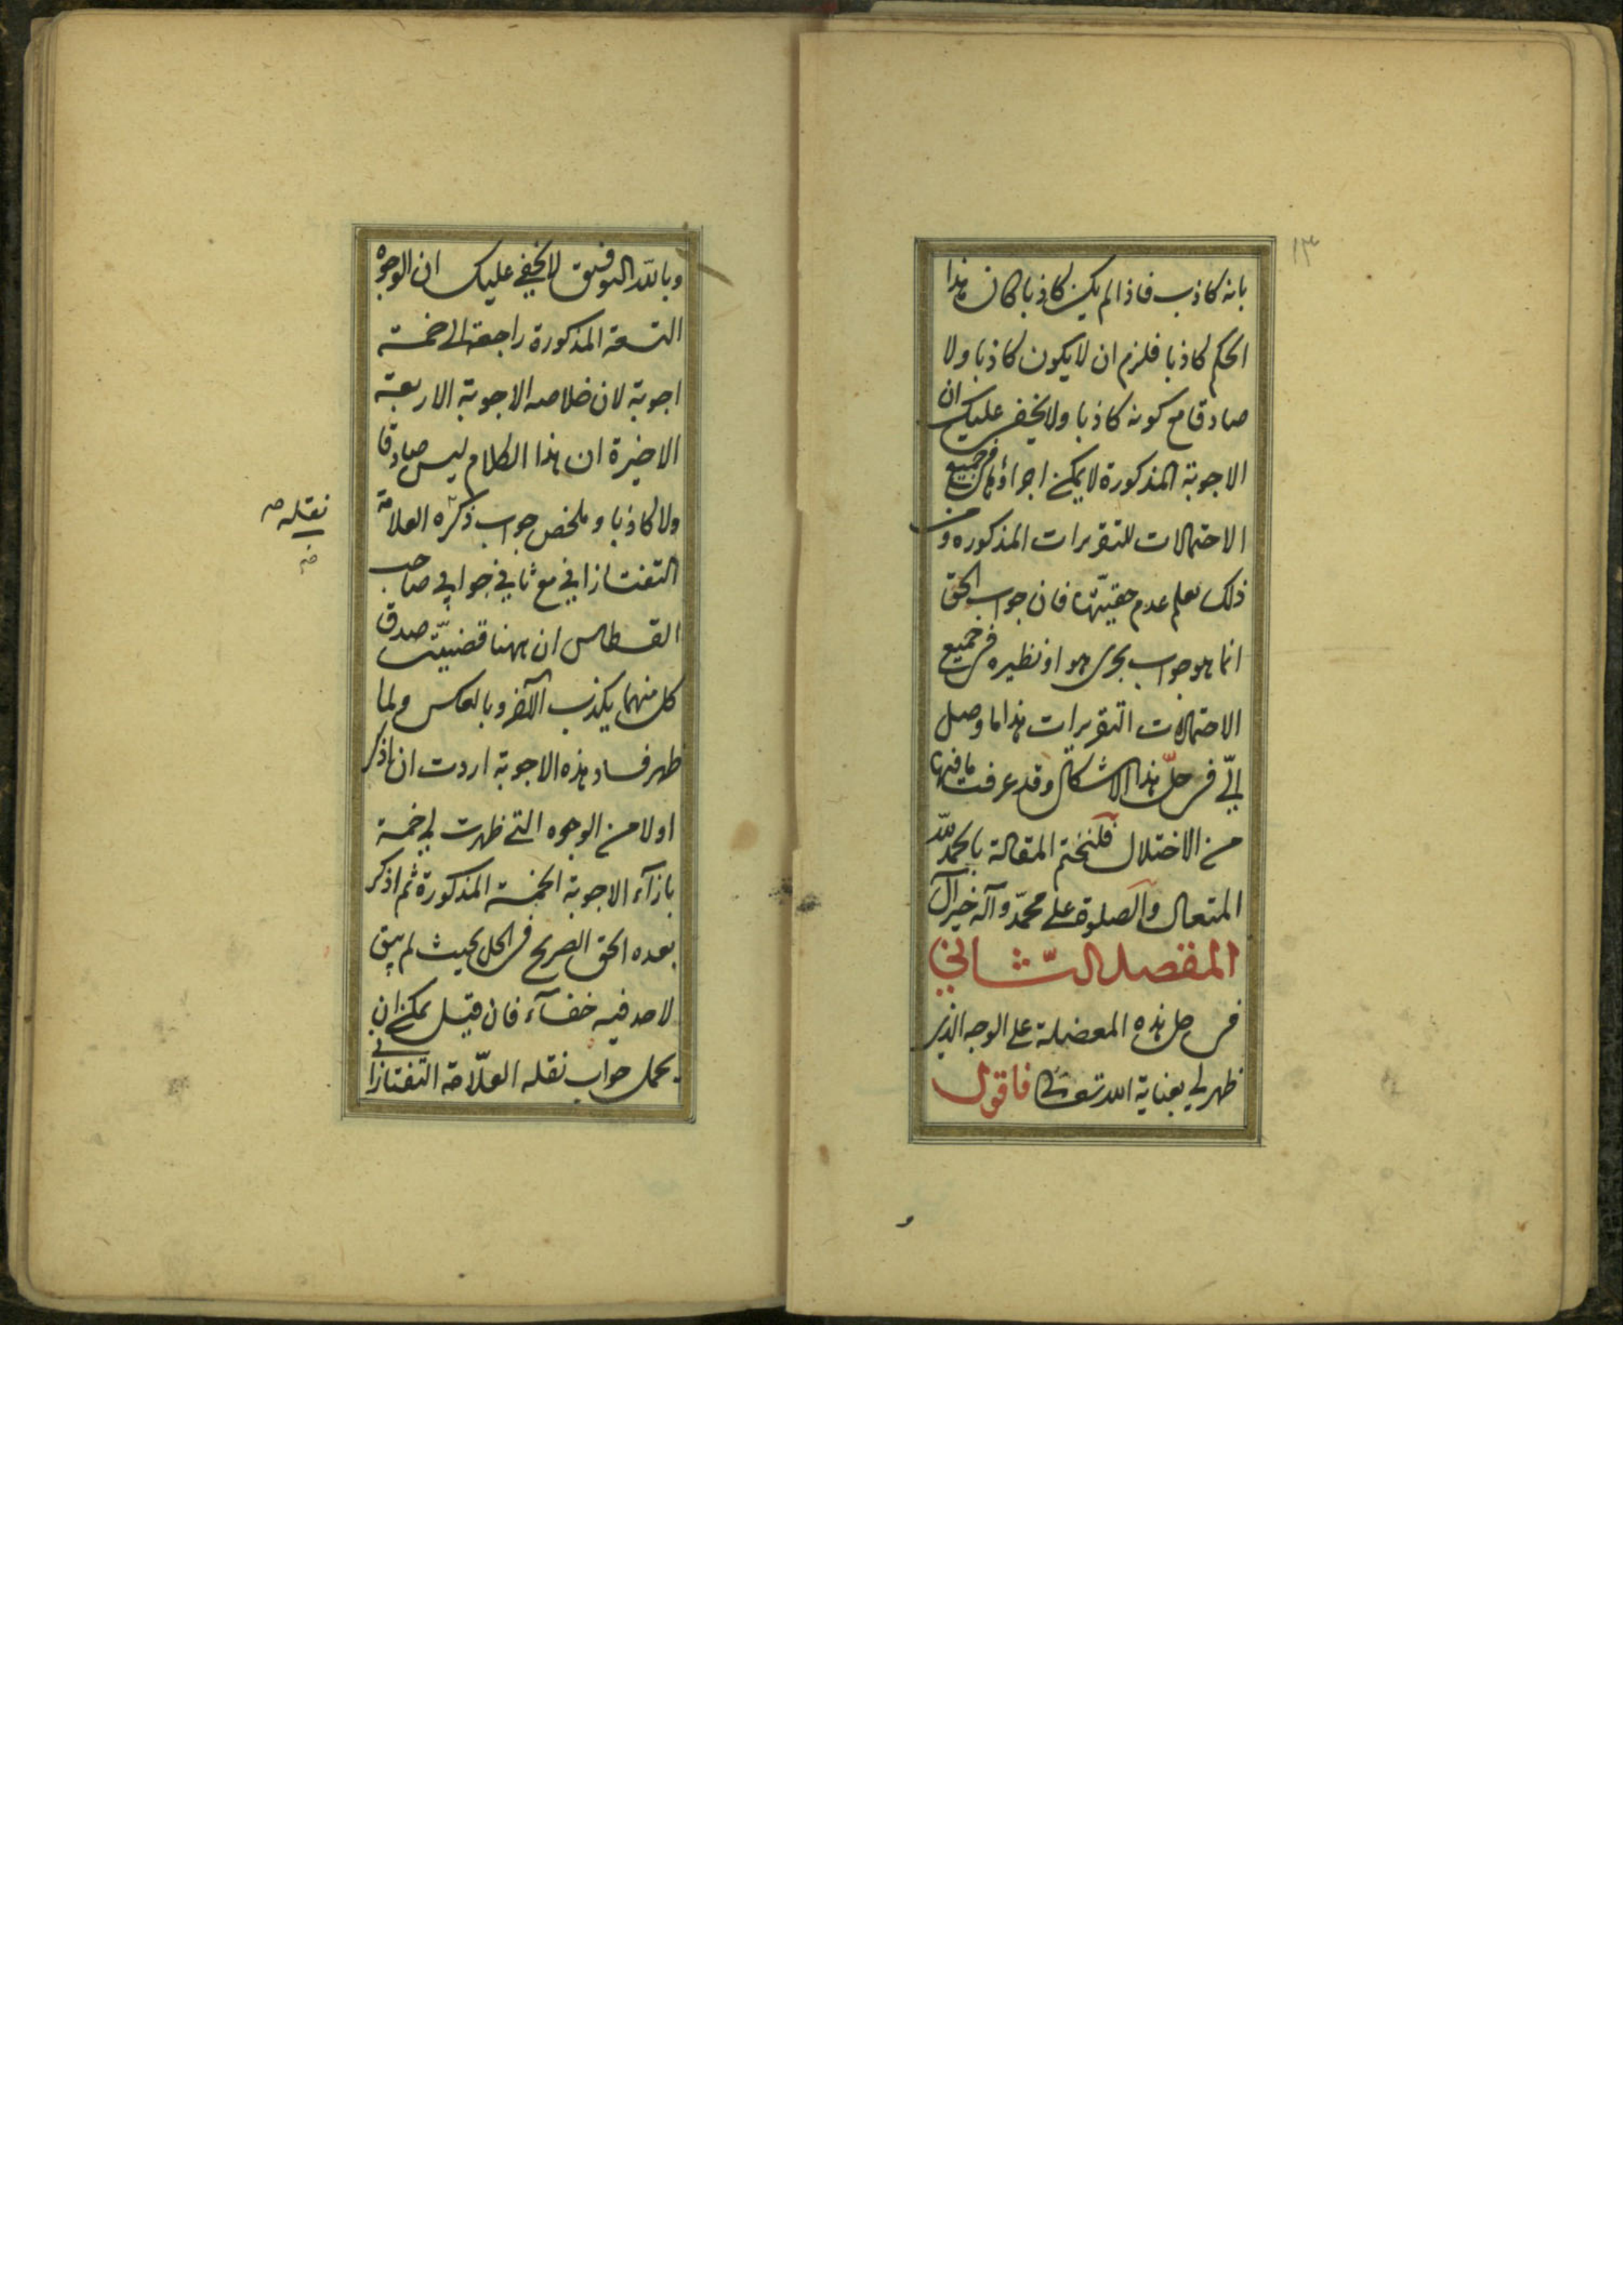 ١٣
بانه كاذب فاذا لم يكن كاذبا كان هذا
الحكم كاذبا فلزم ان لا يكون كاذبا ولا
صادقا مع كونه كاذبا ولا يخفى عليك ان
الاجوبة المذكورة لا يمكن اجراؤها فى جميع
الاحتمالات للتقريرات المذكوره ومن
ذلك تعلم عدم حقيّتها فان جواب الحق
انما هو جواب يجرى هو او نظيره فى جميع
الاحتمالات التقريرات هذا ما وصل
الىّ فى حلّ هذا الاشكال وقد عرفت ما فيها
من الاختلال فلنختم المقالة بالحمد لله
المتعال والصلوة على محمّد وآله خير آل
المقصد الثّانى
فى حل هذه المعضلة على الوجه الذى
ظهر لى بعناية الله تعالى فاقول
و
وبالله التوفيق لا يخفى عليك ان الوجوه
التسعة المذكورة راجعة الى خمسة
اجوبة لان خلاصه الاجوبة الاربعة
الاخيرة ان هذا الكلام ليس صادقا
ولا كاذبا وملخص جواب ذكره العلامة
نقله
التفتازانى مع ثانى جوابى صاحب
القسطاس ان ههنا قضيّتين صدق
كل منهما يكذب الآخر وبالعكس ولما
ظهر فساد هذه الاجوبة اردت ان اذكر
اولا من الوجوه التى ظهرت لى خمسة
بازآء الاجوبة الخمسة المذكورة ثم اذكر
بعده الحق الصريح فى الحل بحيث لم يبق
لاحد فيه خفآء فان قيل يمكن ان
يحمل جواب نقله العلّامة التفتازانى